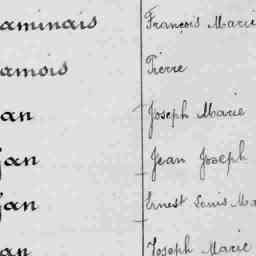 aminais François Marie
amois Pierre
an Joseph Marie
an Jean Joseph
an Ernest Louis Ma
an Joseph Marie